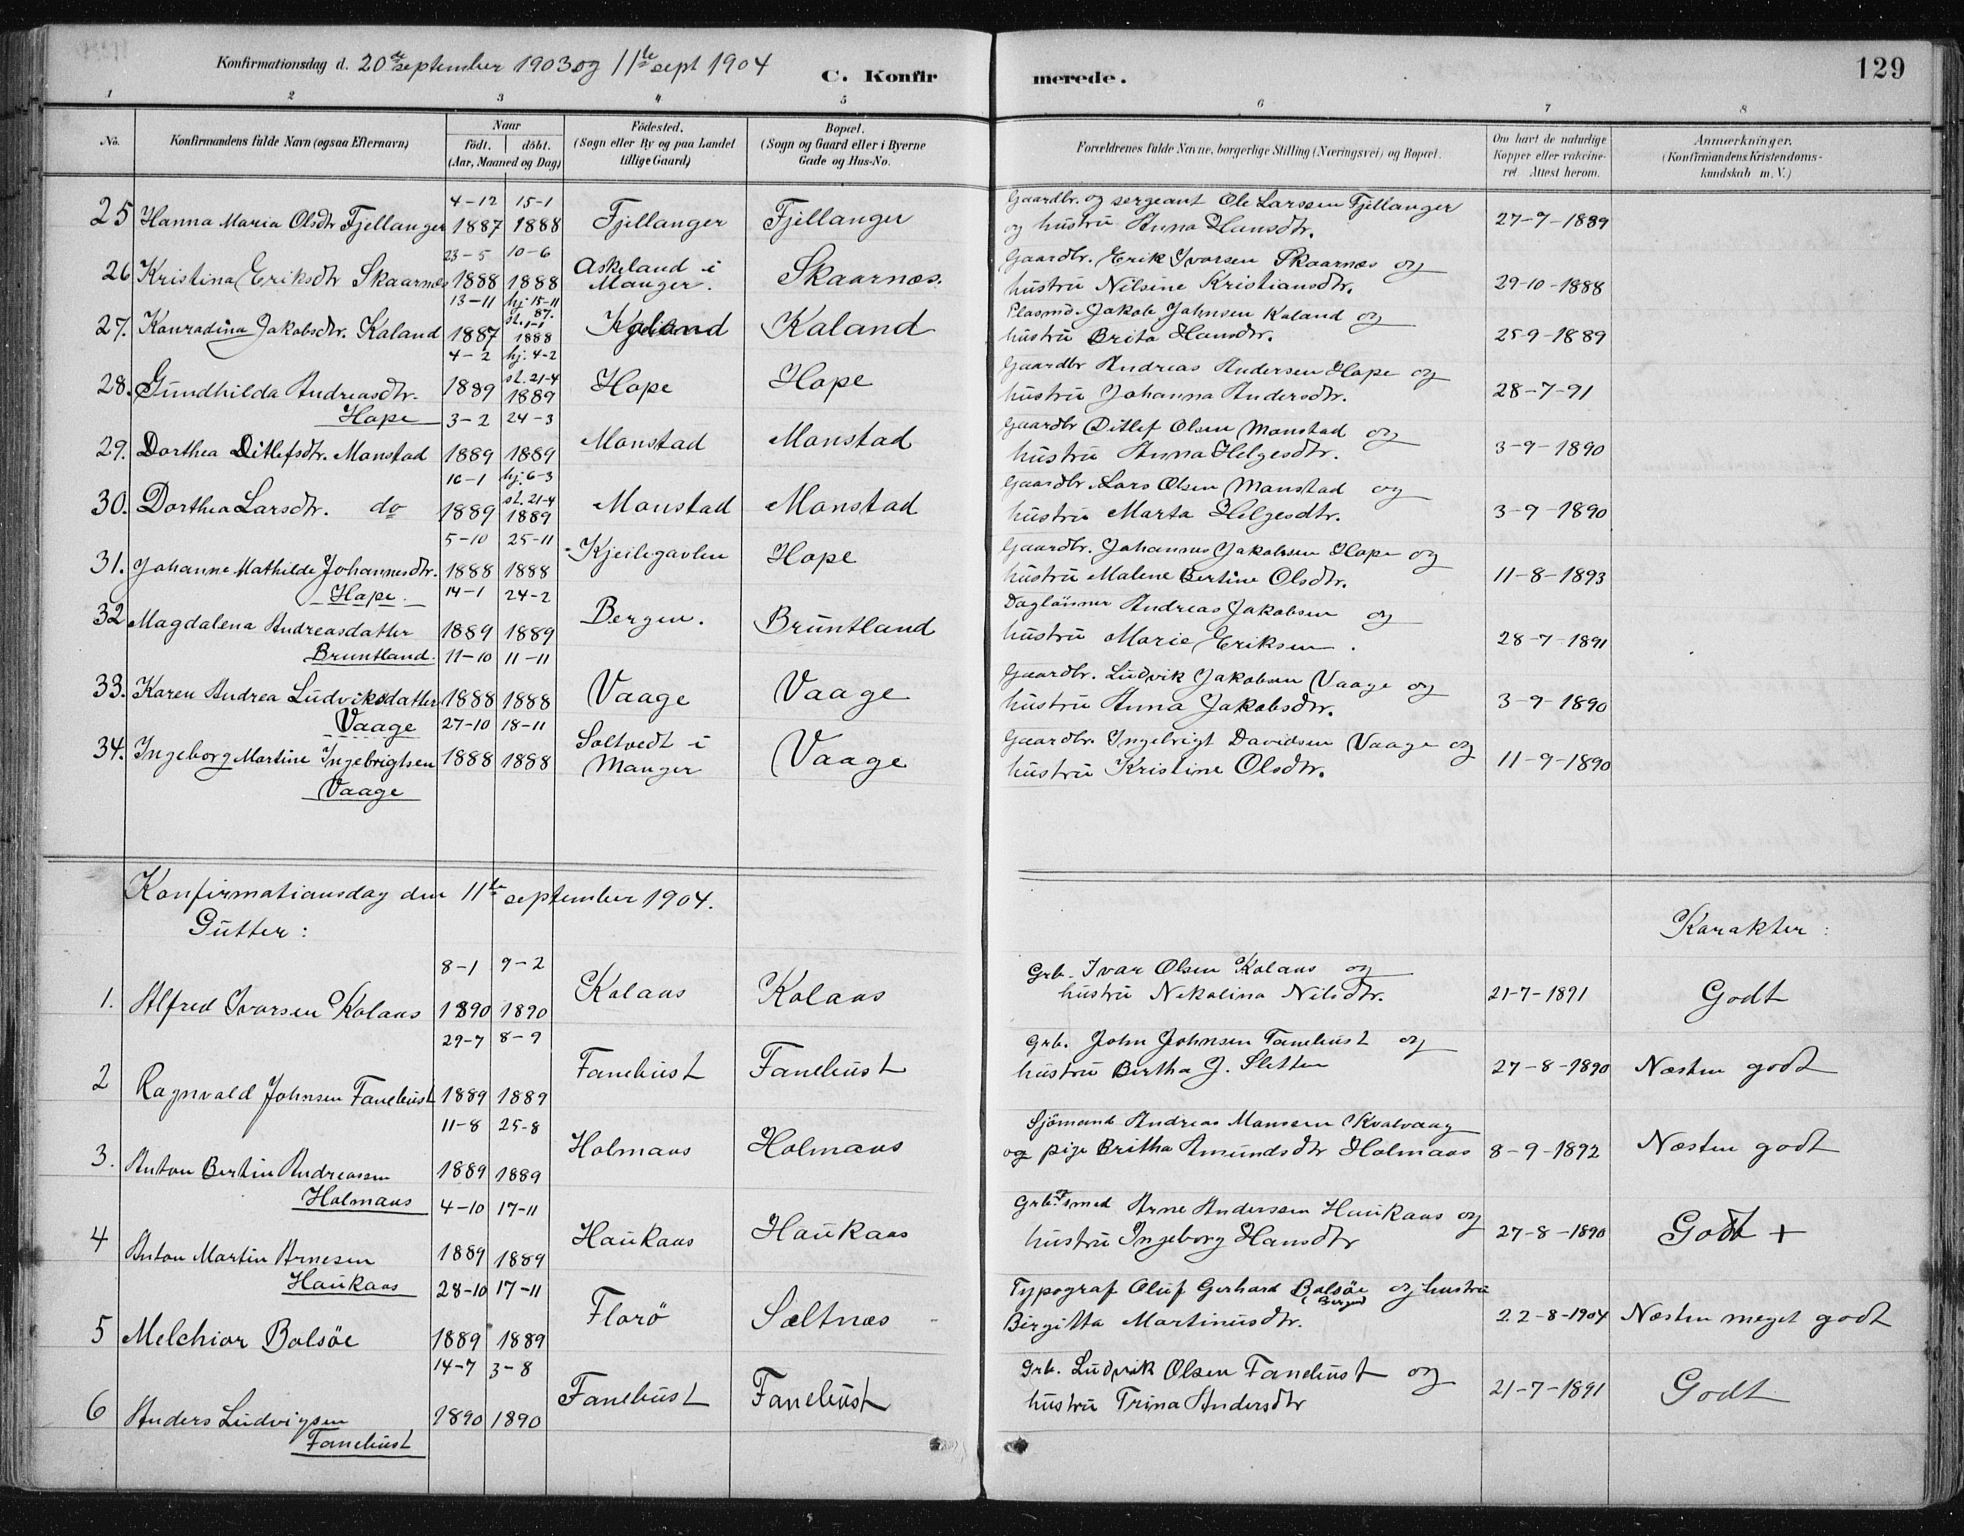 Konfirmationsdag d. 20de september 1903 og 11te sept 1904
C. Konfirmerede.
129
1 2 3 4 5 6 7 8
No. Konfirmandens fulde Navn (ogsaa Efternavn) Naar födt. döbt. (Aar, Maaned og Dag) Födested. (Sogn eller By og paa Landet tillige Gaard) Bopæl. (Sogn og Gaard eller i Byerne Gade og Hus-No. Forældrenes fulde Navne, borgerlige Stilling (Næringsvei) og Bopæl. Om havt de naturlige Kopper eller vakcineret. Attest herom. Anmærkninger. (Konfirmandens Kristendomskundskab m. V.)
4-12 15-1 Gaardbr. og sergeant Ole Larssen Fjellanger
25 Hanna Maria Olsdtr Fjellanger 1887 1888 Fjellanger Fjellanger og hustru Anna Hansdtr. 27-9-1889
23-5 10-6 Askeland i Gaardbr. Erik Ivarsen Skaarnæs og
26 Kristina Eriksdtr Skaarnæs 1888 1888 Manger. Skaarnæs. hustru Nilsine Kristiansdtr. 29-10-1888
13-11 hj. 15-11 87. st. 1-1 Plasmd. Jakob Johnsen Kaland og
27. Konradina Jakobsdtr. Kaland 1887 1888 Kaland Kaland hustru Brita Hansdtr. 25-9-1889
4-2 hj. 4-2 st. 21-4 Gaardbr Andreas Andersen Hope og
28. Gundhilda Andreasdtr. 1889 1889 Hope Hope hustru Johanna Andersdtr. 28-7-91
Hope 3-2 24-3 Gaardbr Ditlef Olsen Monstad og
29. Dorthea Ditlefsdtr. Monstad 1889 1889 Monstad Monstad hustru Anna Helgesdtr. 3-9-1890
16-1 hj. 6-3 st. 21-4 Gaardbr. Lars Olsen Monstad og
30. Dorthea Larsdtr. do 1889 1889 Monstad Monstad hustru Marta Helgesdtr. 3-9-1890
5-10 25-11 Gaardbr. Johannes Jakobsen Hope og
31. Johanne Mathilde Johannesdtr. 1888 1888 Kjeilegavlen Hope hustru Malene Bertine Olsdtr. 11-8-1893
Hope. 14-1 24-2 Daglønner Andreas Jakobsen og
32 Magdalena Andreasdatter 1889 1889 Bergen. Bruntland hustru Marie Eriksen. 28-7-1891
Bruntland. 11-10 11-11 Gaardbr. Ludvik Jakobsen Vaage og
33. Karen Andrea Ludviksdatter 1888 1888 Vaage Vaage hustru Anna Jakobsdtr. 3-9-1890
Vaage 27-10 18-11 Soltvedt i Gaardbr. Ingebrigt Davidsen Vaage og
34. Ingeborg Martine Ingebrigtsen 1888 1888 Manger Vaage hustru Kristine Olsdtr. 11-9-1890
Vaage
Konfirmationsdag den 11te september 1904.
Gutter: Karakter:
8-1 9-2 Grb. Ivar Olsen Kolaas og
1. Alfred Ivarsen Kolaas 1890 1890 Kolaas Kolaas hustru Nikolina Nilsdtr. 21-7-1891 Godt
29-7 8-9 Grb. John Johnsen Fanebust og
2 Ragnvald Johnsen Fanebust 1889 1889 Fanebust Fanebust hustru Bertha J. Sletten 27-8-1890 Næsten godt
11-8 25-8 Sjömand Andreas Monsen Kvalvaag
3. Anton Bertin Andreassen 1889 1889 Holmaas Holmaas og pige Britha Amundsdtr Holmaas 8-9-1892 Næsten godt
Holmaas 4-10 17-11 Grb. & smed Arne Anderssen Haukaas og
4 Anton Martin Arnesen 1889 1889 Haukaas Haukaas hustru Ingeborg Hansdtr 27-8-1890 Godt +
Haukaas 28-10 17-11 Typograf Oluf Gerhard Bolsöe (Bergen) og hustru
5 Melchior Bolsöe 1889 1889 Florö Sæltnæs Birgitta Martinusdtr. 22-8-1904 Næsten meget godt
14-7 3-8 Grb. Ludvik Olsen Fanebust og
6 Anders Ludvigsen 1890 1890 Fanebust Fanebust hustru Trina Andersdtr 21-7-1891 Godt
Fanebust